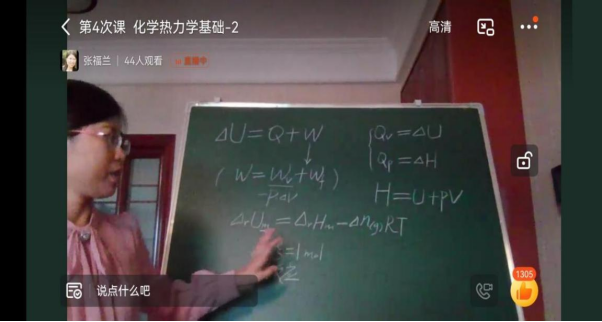 第4次课 化学热力学基础-2
高清
张福兰 | 44人观看
直播中
ΔU=Q+W
(W=W'v+Wf)
-PΔV
ΔrUm=ΔrHm-Δn(g)RT
=1mol
Qv=ΔU
Qp=ΔH
H=U+PV
说点什么吧
1305